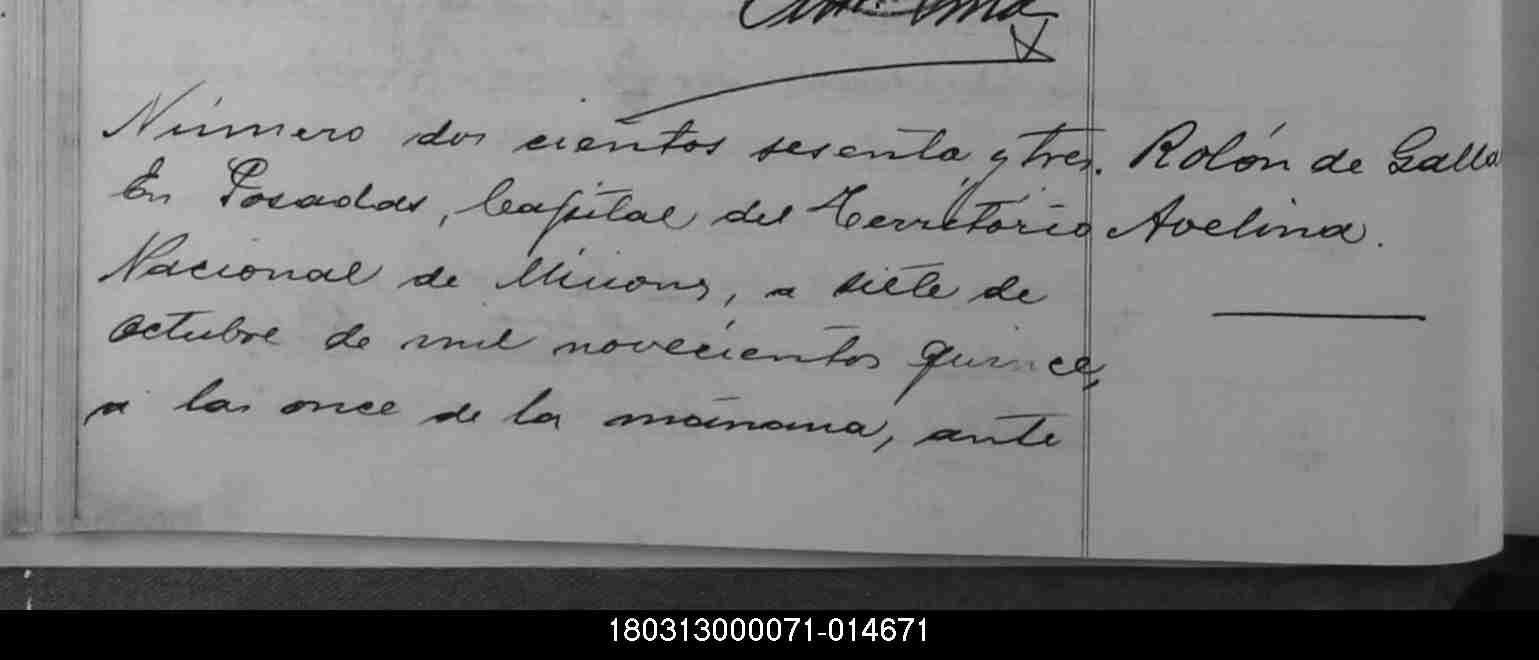 Número dos cientos sesenta y tres.
En Posadas, Capital del Territorio
Nacional de Misiones, a siete de
octubre de mil novecientos quince,
a las once de la mañana, ante
Rolón de Galla
Avelina.
180313000071-014671